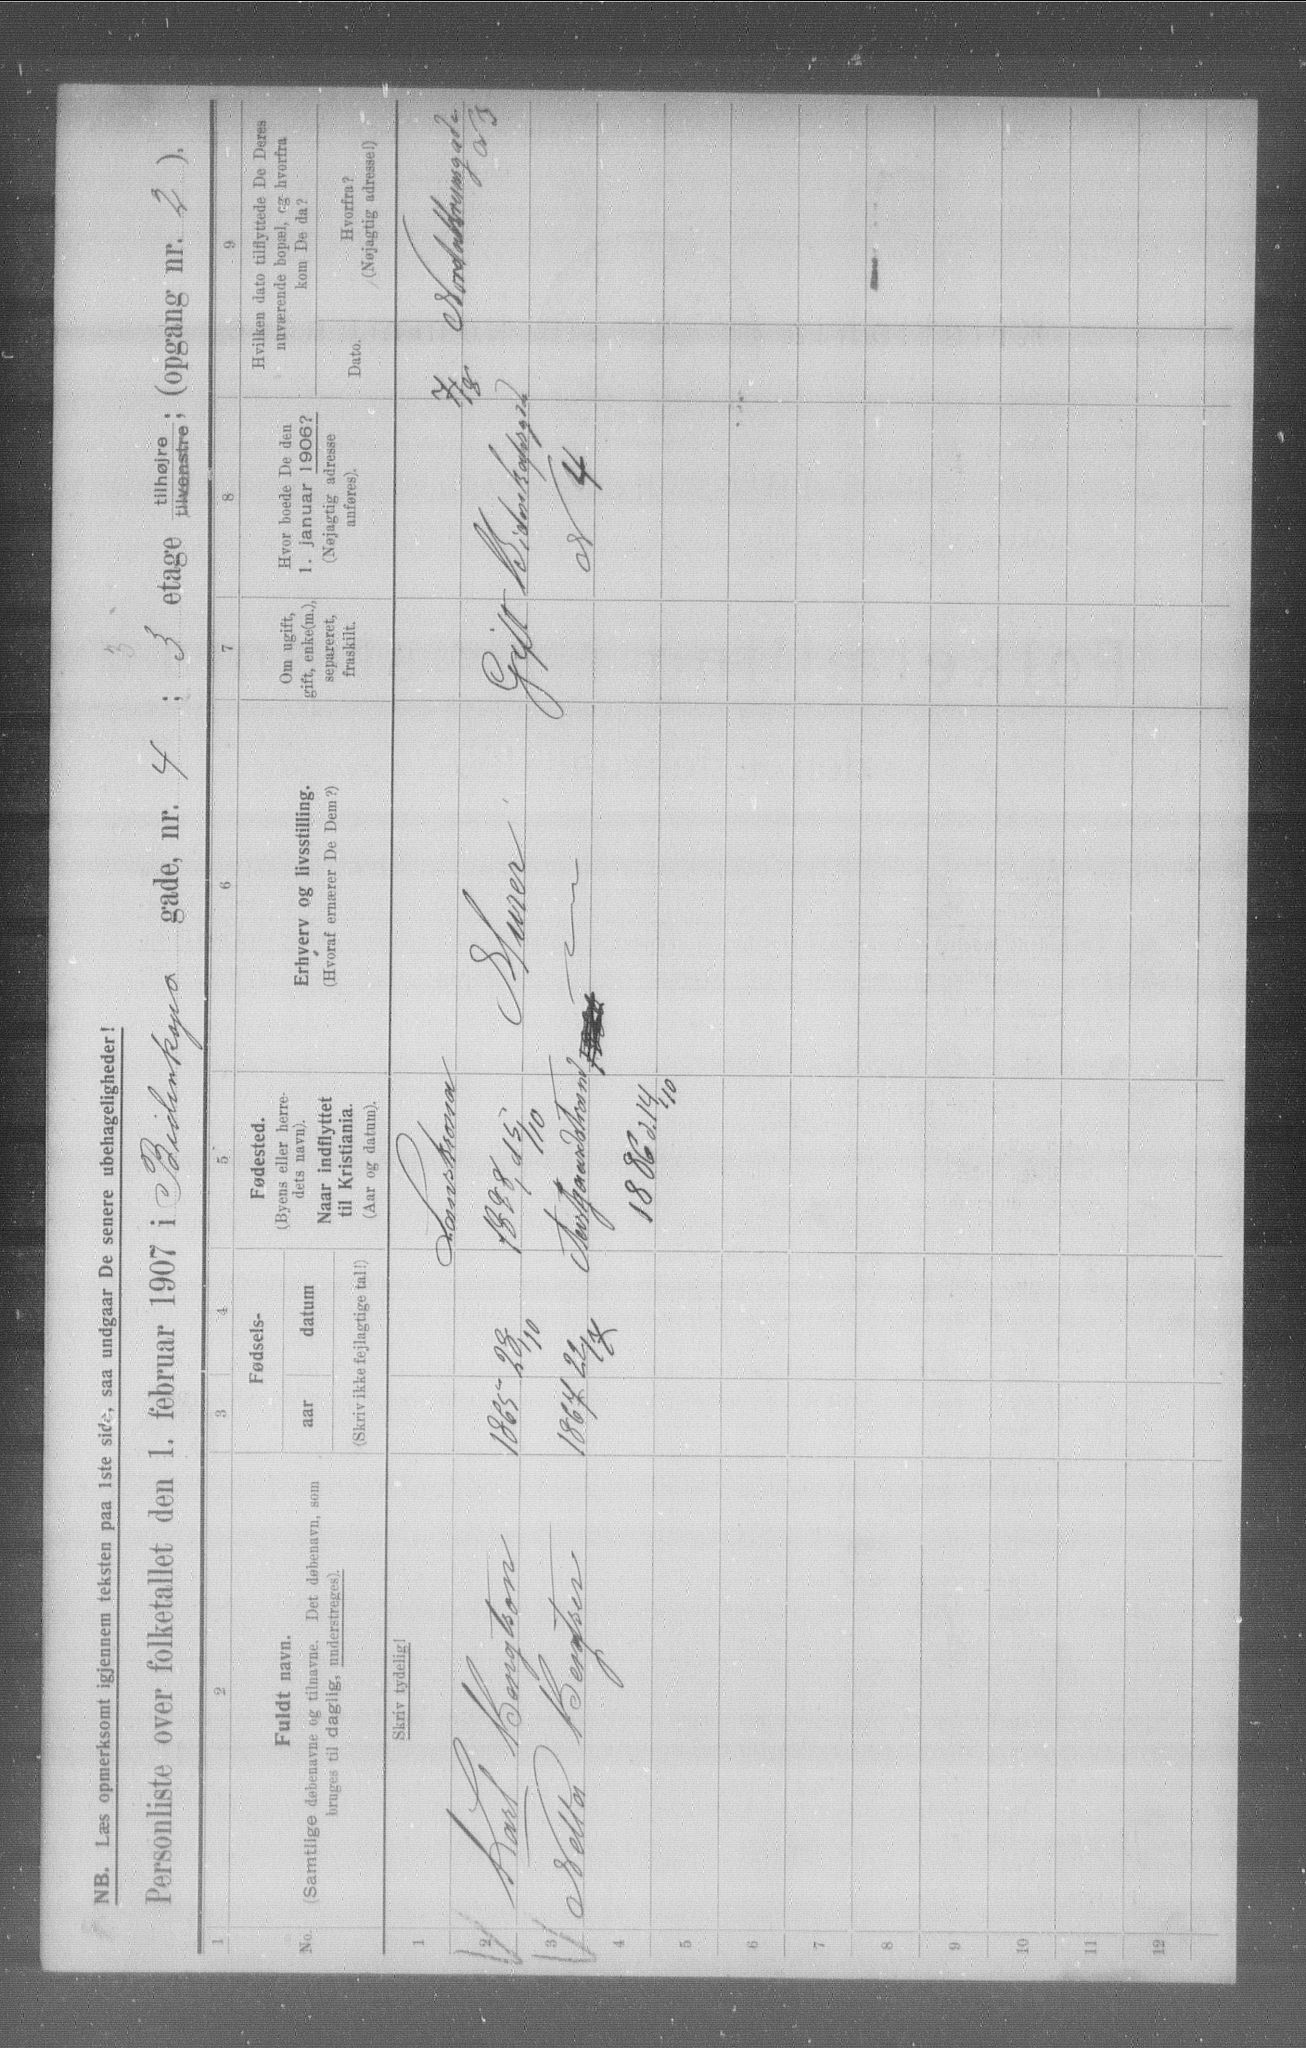 NB. Læs opmerksomt igjennem teksten paa 1ste side, saa undgaar De senere ubehageligheder!
Personliste over folketallet den 1. februar 1907 i Bidenkaps gade, nr. 4 ; 3 etage tilhøjre ; tilvenstre ; (opgang nr. 2 ).
1 2 3 4 5 6 7 8 9
No.
Fuldt navn.
(Samtlige døbenavne og tilnavne. Det døbenavn, som
bruges til daglig, understreges).
Fødsels-
aar datum
(Skriv ikke fejlagtige tal!)
Fødested.
(Byens eller herre-
dets navn).
Naar indflyttet
til Kristiania.
(Aar og datum).
Erhverv og livsstilling.
(Hvoraf ernærer De Dem?)
Om ugift,
gift, enke(m.),
separeret,
fraskilt.
Hvor boede De den
1. januar 1906?
(Nøjagtig adresse
anføres).
Hvilken dato tilflyttede De Deres
nuværende bopæl, og hvorfra
kom De da?
Dato.
Hvorfra?
(Nøjagtig adresse!)
Skriv tydelig!
1 Lanskrona
2 Karl Bengtson 1865 28/10 1888, d 15/10 Murer Gift Bidenkapsgad
N 4
3 Netta Bengtson 1867 22
4 1886 d. 14/10
5
6
7
8
9
10
11
12